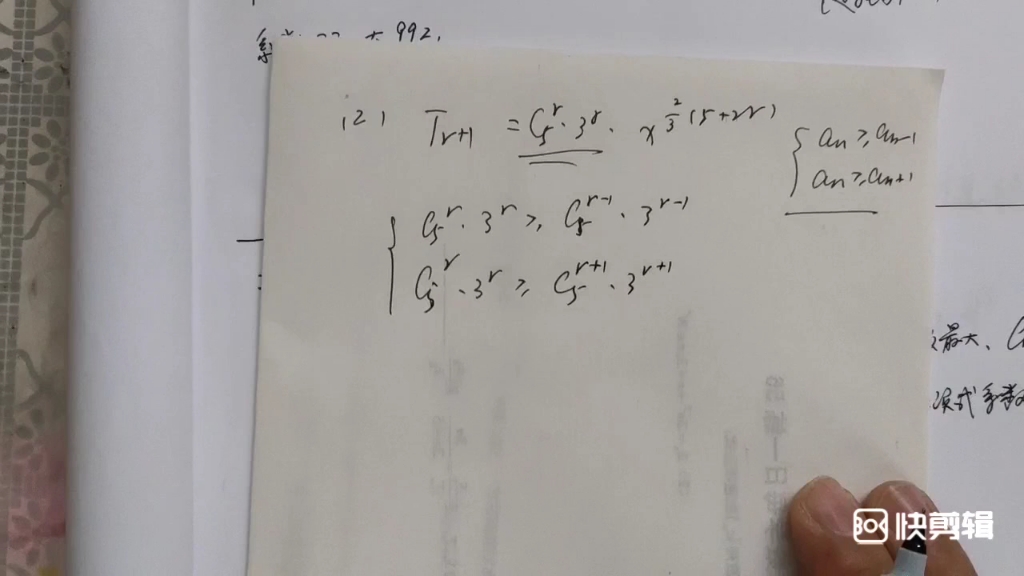 大992,
(2) T_{r+1} = C_5^r · 3^r · x^{\frac{2}{3}(5+2r)}
{ a_n ≥ a_{n-1}
a_n ≥ a_{n+1}
{ C_5^r · 3^r ≥ C_5^{r-1} · 3^{r-1}
C_5^r · 3^r ≥ C_5^{r+1} · 3^{r+1}
最大、C
项式系数
快剪辑